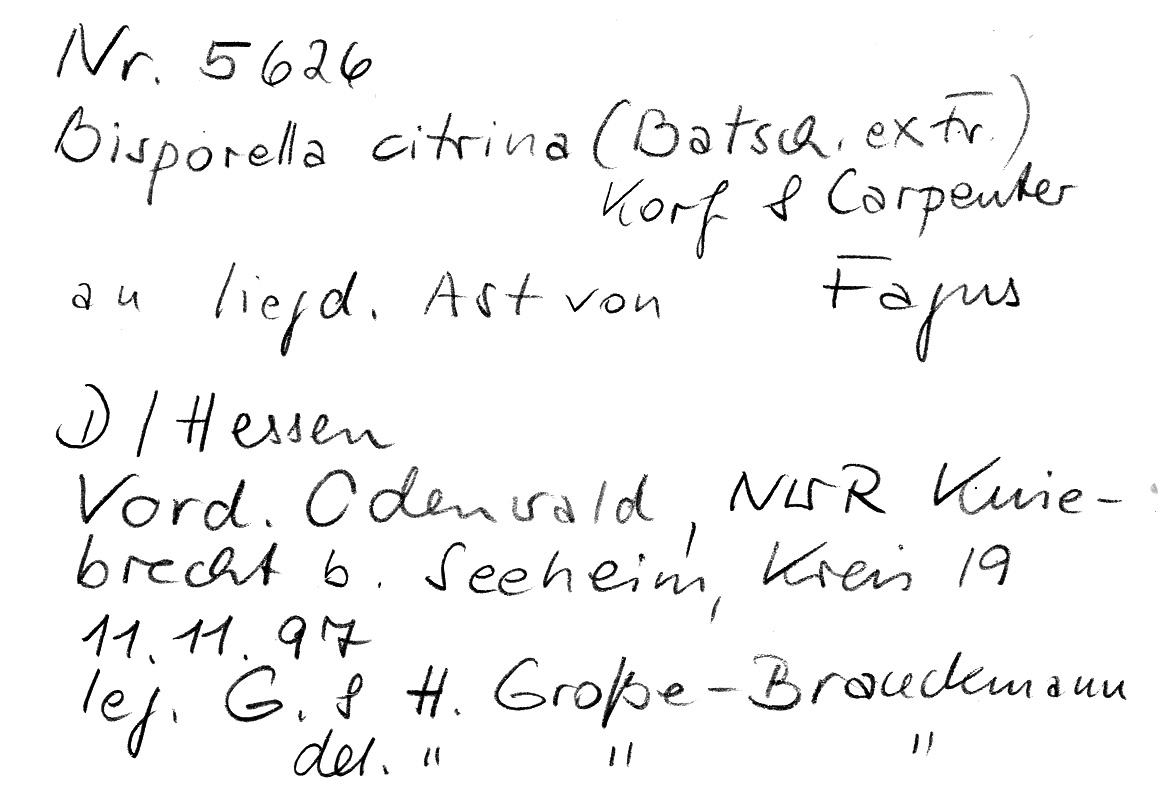 Nr. 5626
Bisporella citrina (Batsch. ex Fr.)
Korf & Carpenter
an liegd. Ast von Fagus
D / Hessen
Vord. Odenwald, NWR Knie-
brecht b. Seeheim, Kreis 19
11.11.97
leg. G. & H. Große-Brauckmann
det. " " "